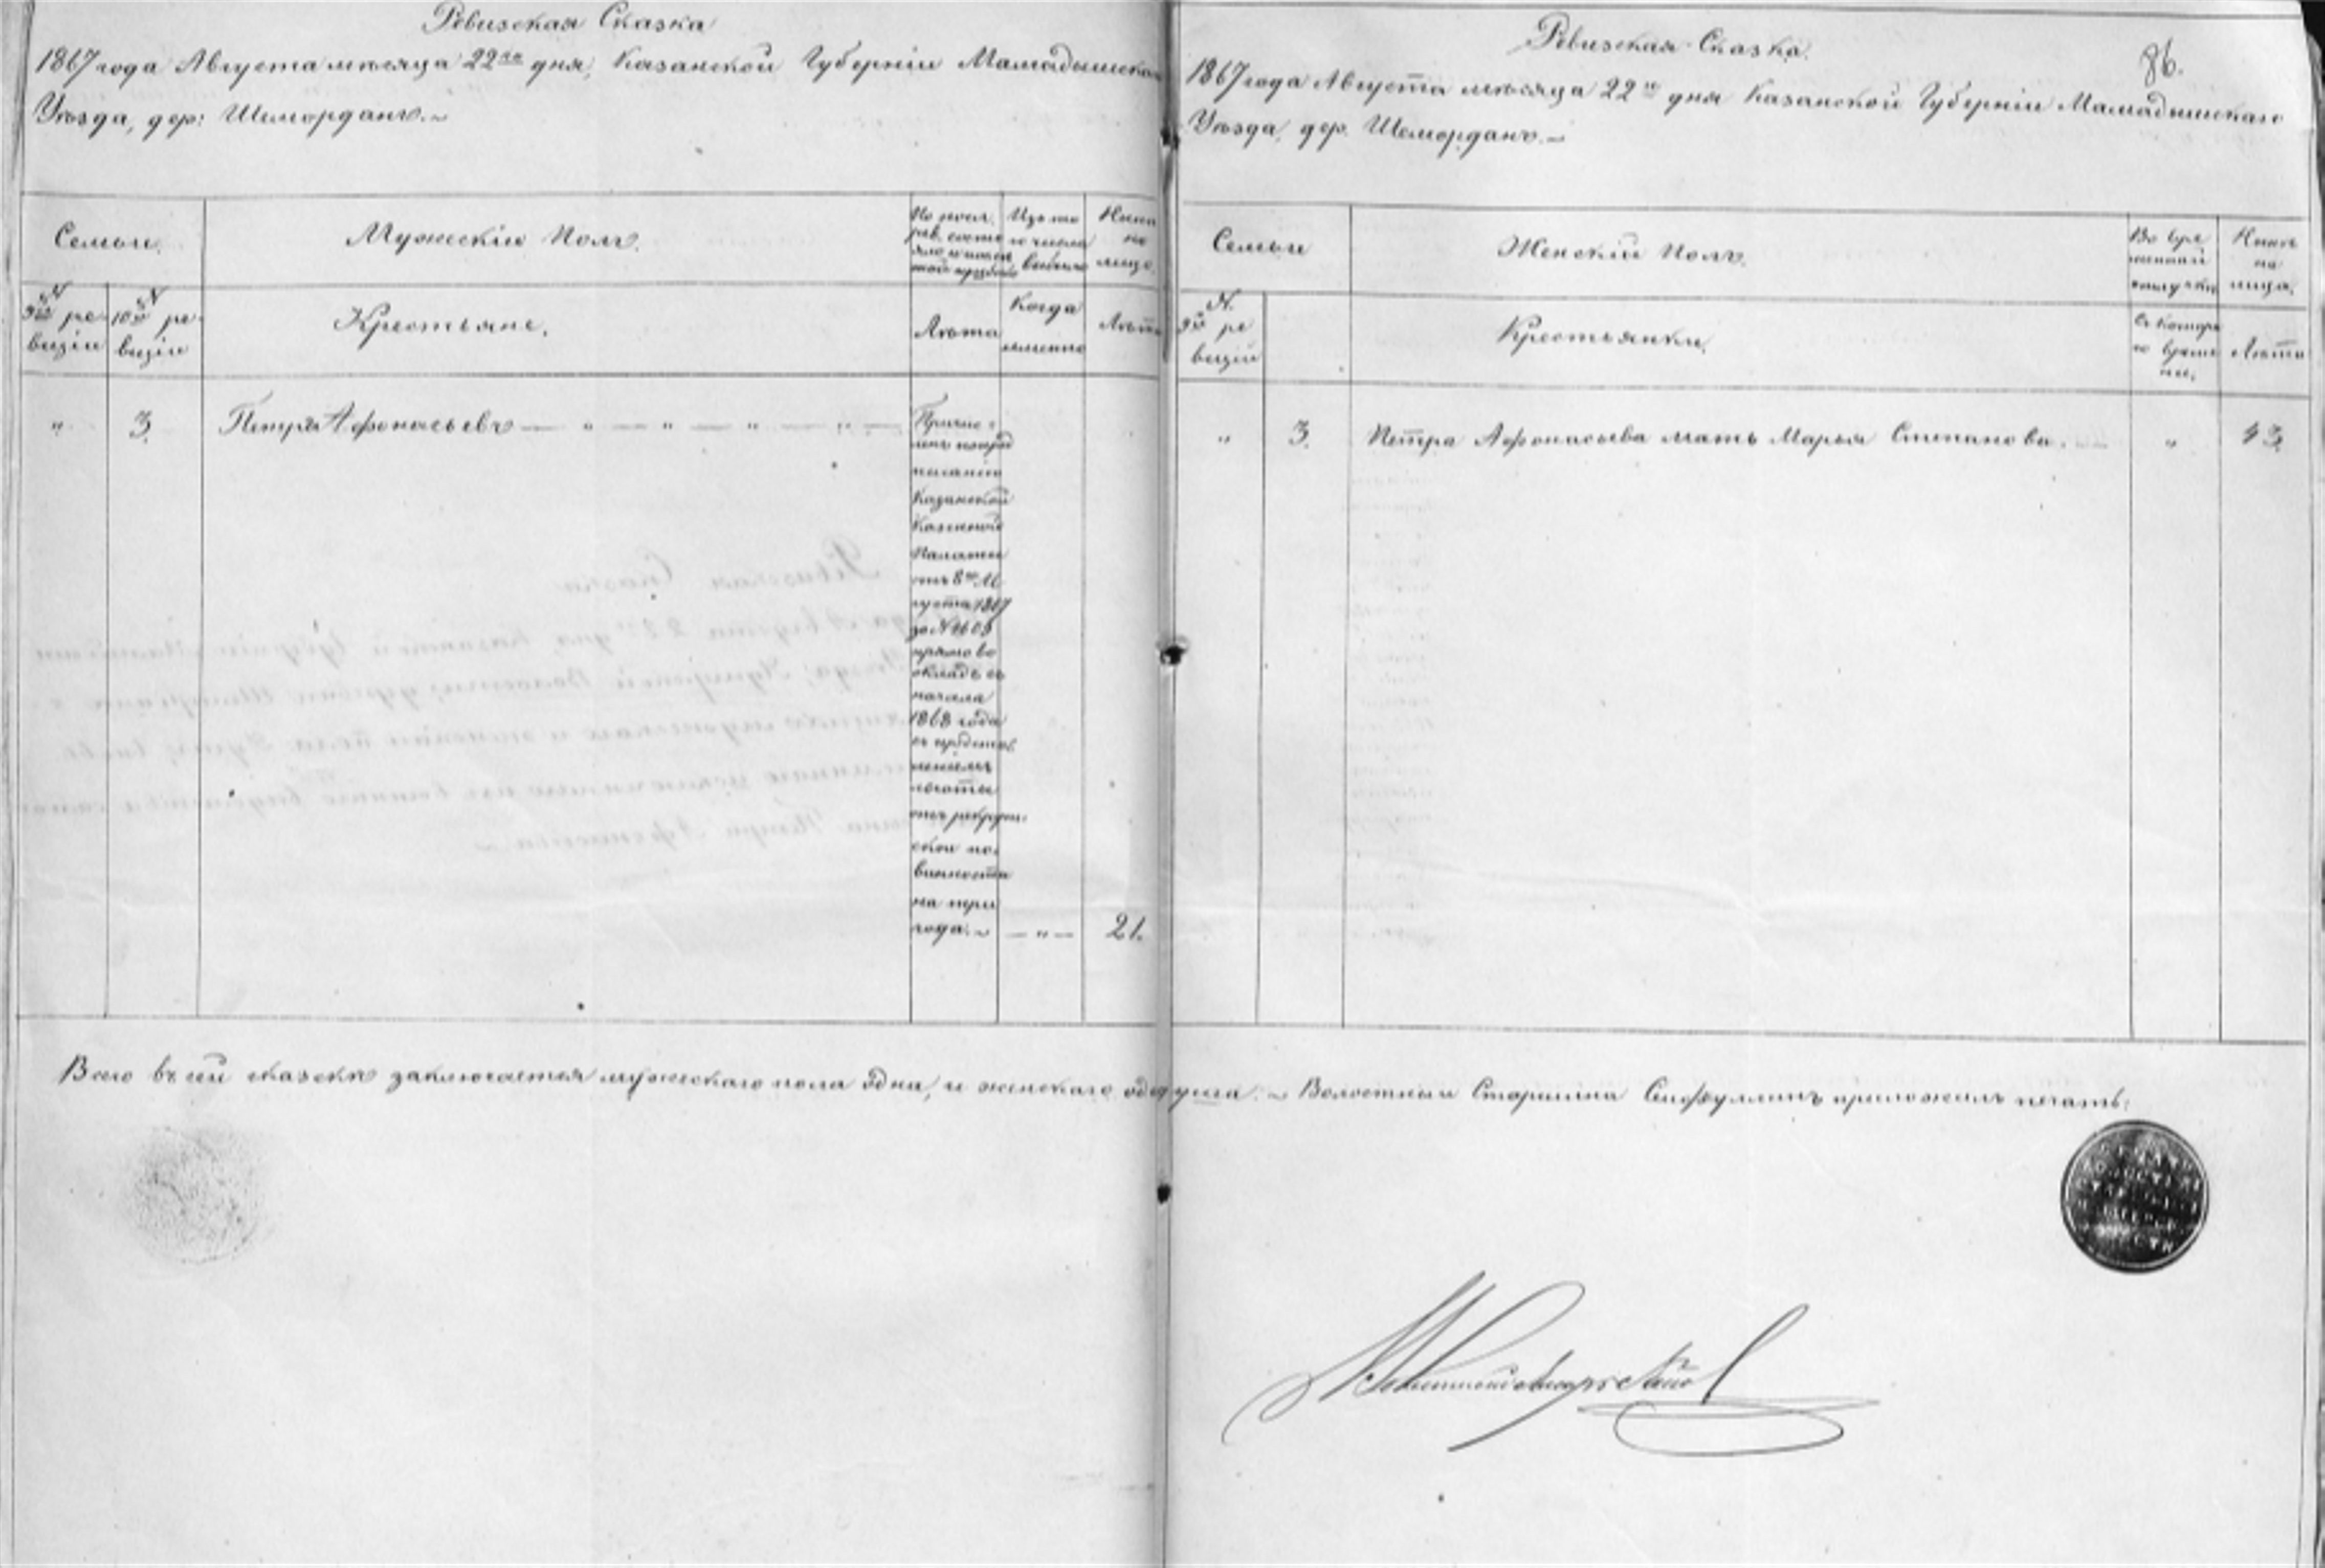 Ревизская Сказка
1867 года Августа мѣсяца 22го дня, Казанской Губерніи Мамадышскаго
Уѣзда, дер: Шемордановъ.
Семьи.
Мужескій Полъ.
Изъ то
го числа
выбыло
Нынѣ
на
лицо.
№
9й ре-
визіи
№
10й ре-
визіи
Крестьяне.
Лѣта
Когда
именно
Лѣта
„ 3. Петръ Афонасьевъ — „ — „ — „ — „ —
Причис-
ленъ
Казанской
Казенной
Палаты
отъ 8го Ав
густа 1867
за №
окладъ съ
начала
1868 года
съ
льготы
отъ рекрут-
ской по-
винности
на три
года. — „ — 21.
Ревизская Сказка.
86.
1867 года Августа мѣсяца 22го дня Казанской Губерніи Мамадышскаго
Уѣзда, дер. Шемордановъ.
Семьи
Женскій Полъ.
Во вре
менной
отлучкѣ
Нынѣ
на
лицо.
№.
9й ре
визіи
Крестьянки.
Съ котора
го време
ни.
Лѣта
„ 3. Петра Афонасьева мать Марья Степанова. — „ 43.
Всего въ сей сказкѣ заключается мужескаго пола одна, и женскаго одна душа. Волостный Старшина Сейфуллинъ приложилъ печать: